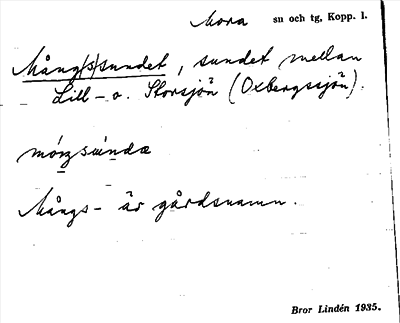 Mora su och tg, Kopp. l.
Mång(s)sundet, sundet mellan
Lill- o. Storsjön (Oxbergssjön).
Mångs- är gårdsnamn.
Bror Lindén 1935.